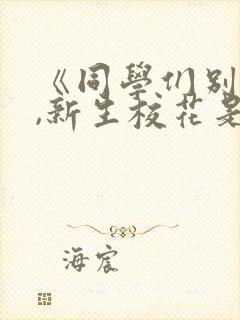 《同學們別
,新生校花是
海宸